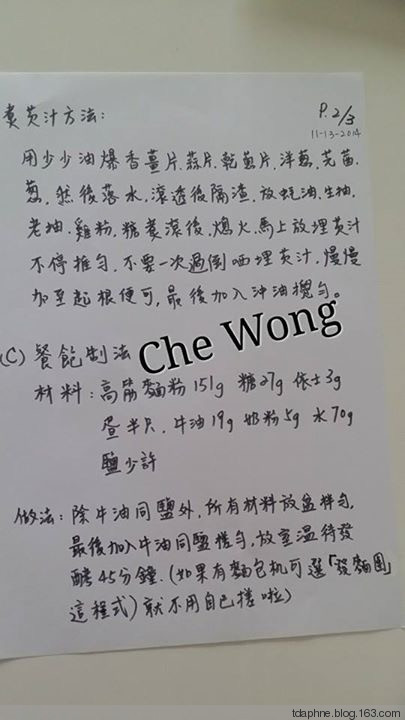 煑芡汁方法：
P.2/3
11-13-2014
用少少油爆香薑片.蒜片.乾葱片.洋葱.芫茜.
葱，然後落水，滾透後隔渣，放蚝油.生抽.
老抽.雞粉.糖煑滾後，熄火，馬上放埋芡汁
不停推勻，不要一次過倒晒埋芡汁，慢慢
加至起根便可，最後加入牛油攪勻。
Che Wong
(C) 餐飽制法
材料：高筋麵粉 151g 糖27g 依士3g
蛋半只，牛油19g 奶粉5g 水70g
鹽少許
做法：除牛油同鹽外，所有材料放盆拌勻，
最後加入牛油同鹽搓勻，放室溫待發
酵45分鐘.(如果有麵包机可選「發麵團」
這程式)就不用自己搓啦)
tdaphne.blog.163.com